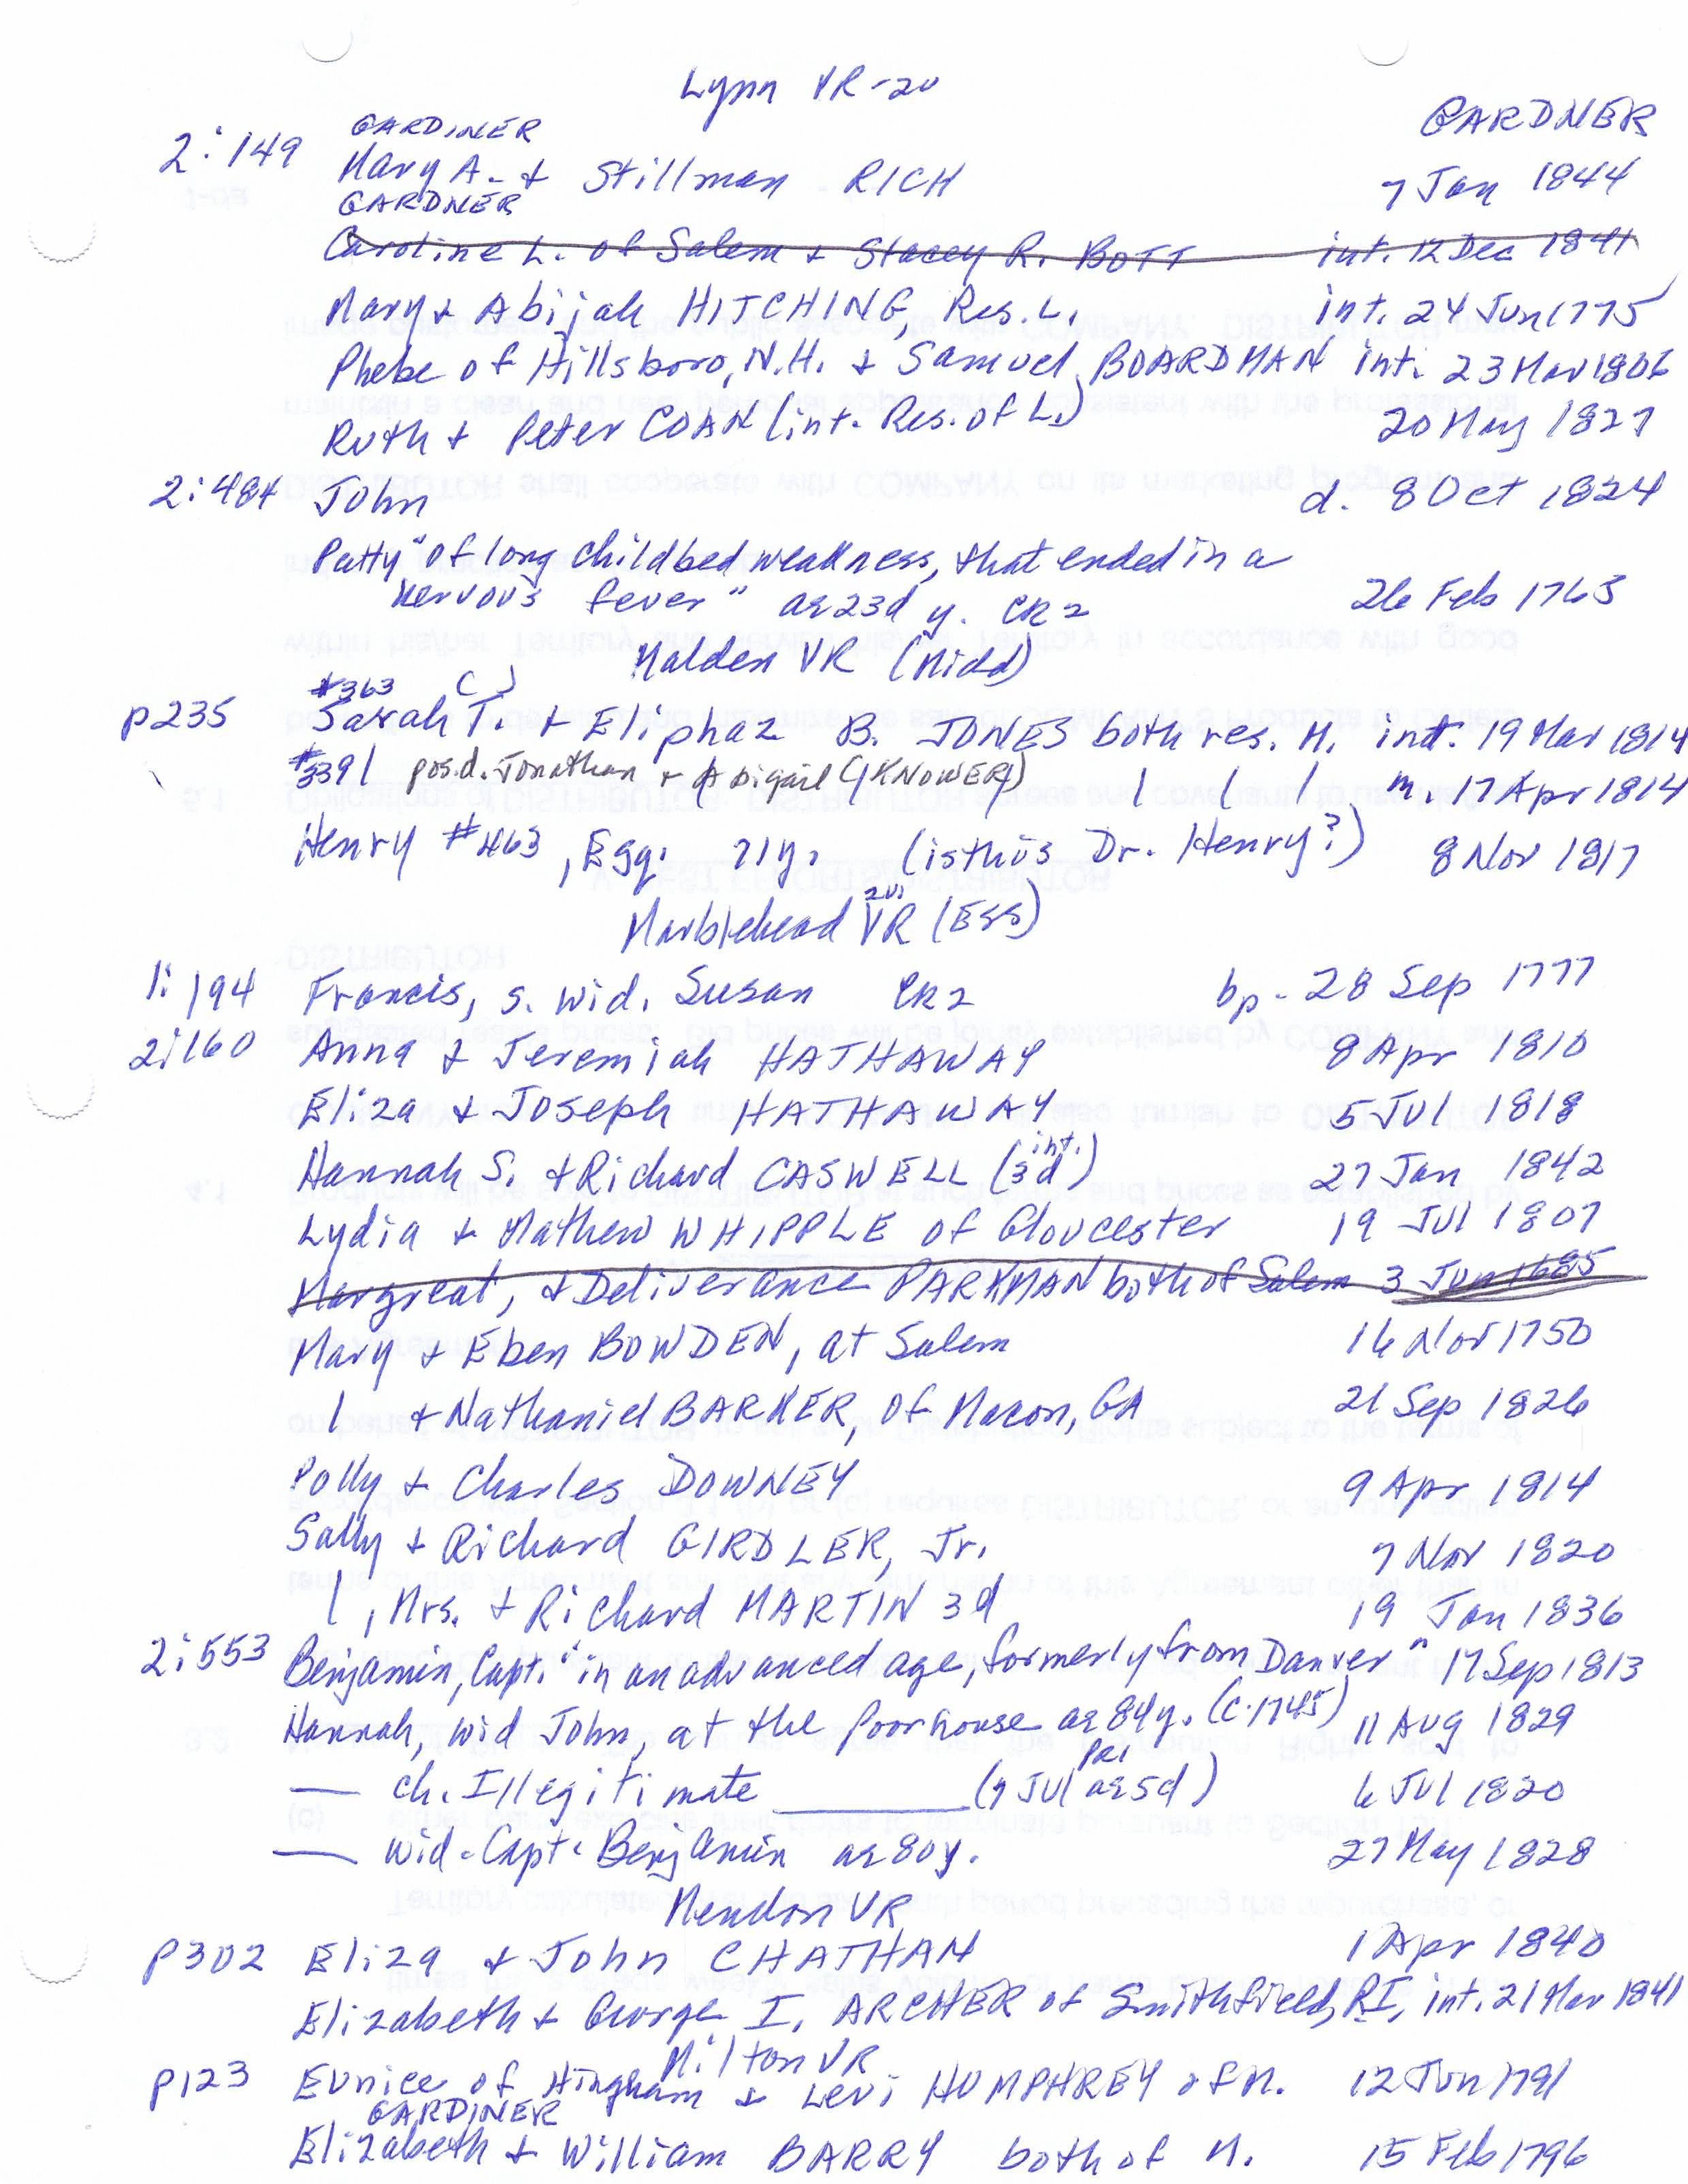 Lynn VR-20
GARDNER
GARDINER
2:149 Mary A. & Stillman RICH 7 Jan 1844
GARDNER
Caroline L. of Salem & Stacey R. BOTT int. 12 Dec 1841
Mary & Abijah HITCHING, Res. L. int. 24 Jun 1775
Phebe of Hillsboro, N.H. & Samuel BOARDMAN int. 23 Mar 1806
Ruth & Peter COAN (int. Res. of L.) 20 May 1827
2:484 John d. 8 Oct 1824
Patty "of long childbed weakness, that ended in a
nervous fever" ae 23d y. CR2 26 Feb 1763
Malden VR (Midd)
#363 ( )
p235 Sarah T. & Eliphaz B. JONES both res. M. int. 19 Mar 1814
#3391 pos. d. Jonathan & Abigail (KNOWER) m. 17 Apr 1814
Henry #463, Esq. 71y. (is this Dr. Henry?) 8 Nov 1817
Marblehead VR (Ess)
20
1:194 Francis, s. wid. Susan CR2 bp. 28 Sep 1777
2:160 Anna & Jeremiah HATHAWAY 8 Apr 1810
Eliza & Joseph HATHAWAY 5 Jul 1818
Hannah S. & Richard CASWELL (3d int.) 27 Jan 1842
Lydia & Mathew WHIPPLE of Gloucester 19 Jul 1807
Margreat, & Deliverance PARKMAN both of Salem 3 Jun 1685
Mary & Eben BOWDEN, at Salem 16 Nov 1750
| & Nathaniel BARKER, of Macon, GA 21 Sep 1826
Polly & Charles DOWNEY 9 Apr 1814
Sally & Richard GIRDLER, Jr. 7 Nov 1820
|, Mrs. & Richard MARTIN 3d 19 Jan 1836
2:553 Benjamin, Capt. "in an advanced age, formerly from Danver" 17 Sep 1813
Hannah, wid John, at the Poorhouse ae 84y. (c.1745) 11 Aug 1829
— ch. Illegitimate ______ (7 Jul ae 5d PR1) 6 Jul 1820
— wid. Capt. Benjamin ae 80y. 27 May 1828
Mendon VR
p302 Eliza & John CHATHAN 1 Apr 1840
Elizabeth & George I. ARCHER of Smithfield, RI, int. 21 Mar 1841
Milton VR
p123 Eunice of Hingham & Levi HUMPHREY of M. 12 Jun 1791
GARDINER
Elizabeth & William BARRY both of M. 15 Feb 1796